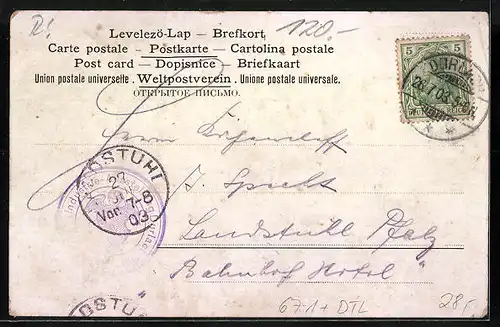 120.-
Levelezö-Lap — Brefkort
Carte postale — Postkarte — Cartolina postale
Post card — Dopisnice — Briefkaart
Union postale universelle. Weltpostverein. Unione postale universale.
ОТКРЫТОЕ ПИСЬМО.
5 5
Herrn
J. Specht
Landstuhl Pfalz
"Bahnhof Hotel"
27
Vor. 7-8
03
67.1 + DTL
28.-